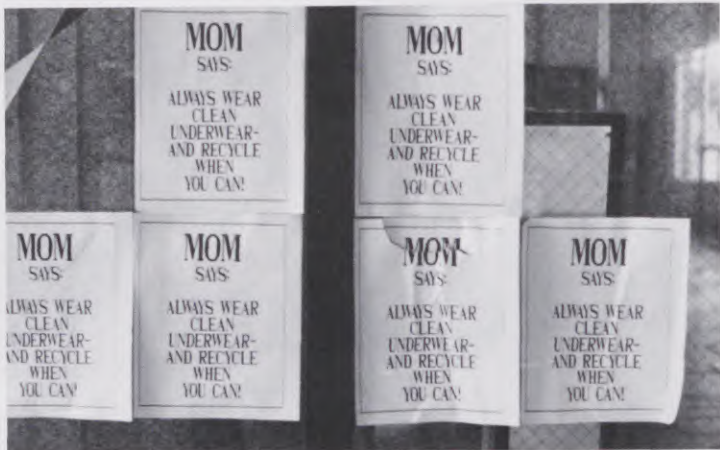 MOM
SAYS:
ALWAYS WEAR
CLEAN
UNDERWEAR-
AND RECYCLE
WHEN
YOU CAN!
MOM
SAYS:
ALWAYS WEAR
CLEAN
UNDERWEAR-
AND RECYCLE
WHEN
YOU CAN!
MOM
SAYS:
ALWAYS WEAR
CLEAN
UNDERWEAR-
AND RECYCLE
WHEN
YOU CAN!
MOM
SAYS:
ALWAYS WEAR
CLEAN
UNDERWEAR-
AND RECYCLE
WHEN
YOU CAN!
MOM
SAYS:
ALWAYS WEAR
CLEAN
UNDERWEAR-
AND RECYCLE
WHEN
YOU CAN!
MOM
SAYS:
ALWAYS WEAR
CLEAN
UNDERWEAR-
AND RECYCLE
WHEN
YOU CAN!